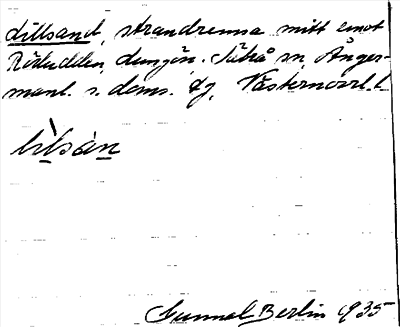 Lillsand, strandremsa mitt emot
Rörudden, dungön. Säbrå sn, Ånger-
manl. s. doms. dg, Västernorrl. l.
lìlsàn
Gunnel Berlin 1935